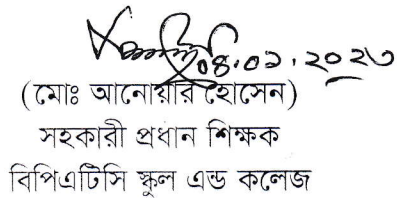 ০৪.০১.২০২৩
(মোঃ আনোয়ার হোসেন)
সহকারী প্রধান শিক্ষক
বিপিএটিসি স্কুল এন্ড কলেজ